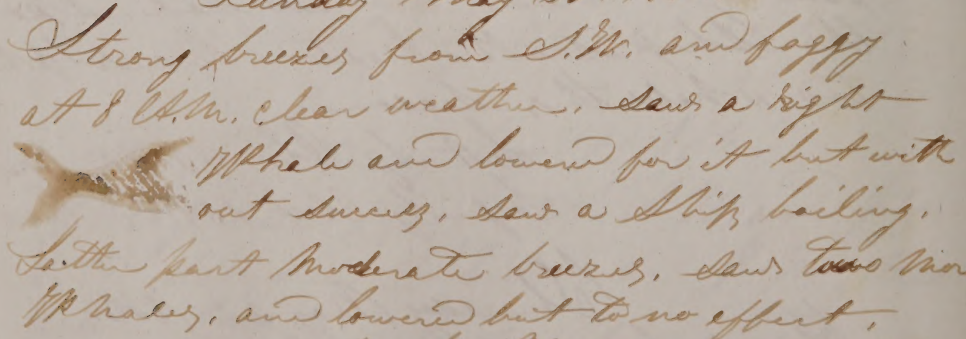 Sunday May
Strong breezes from S.W. and foggy
at 8 A.M. clear weather. saw a right
Whale and lowered for it but with
out success. saw a Ship boiling.
Latter part Moderate breezes. saw two mor
Whales, and lowered but to no effect.